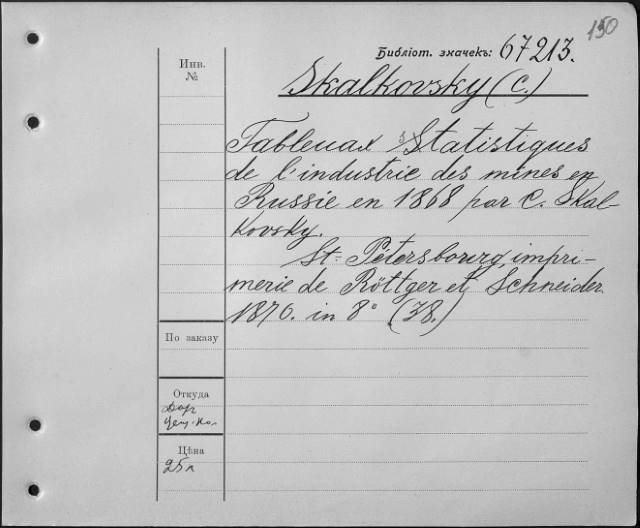 150
Библіот. значекъ: 67213.
Инв.
№
Skalkovsky (C.)
Tableuax Statistiques
de l'industrie des mines en
Russie en 1868 par C. Skal-
kovsky.
St. Pétersbourg, impri-
merie de Röttger et Schneider
1870. in 8° (38.)
По заказу
Откуда
Дар
Цѣна
25к